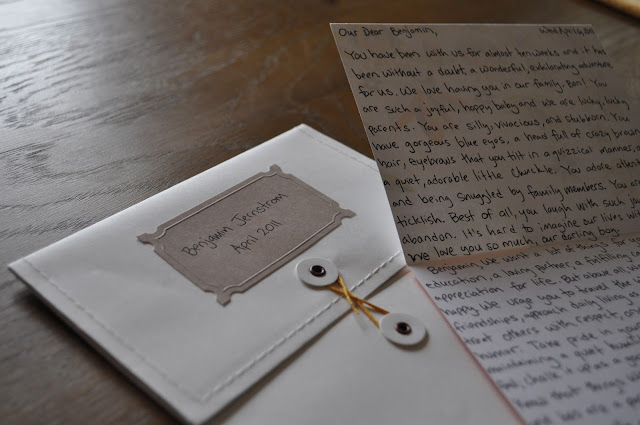 Benjamin Jernstrom
April 2011
Our Dear Benjamin,
You have been with us for almost ten weeks and it has
been without a doubt, a wonderful, exhilarating adventure
for us. We love having you in our family, Ben! You
are such a joyful, happy baby and we are lucky, lucky
parents. You are silly, vivacious, and stubborn. You
have gorgeous blue eyes, a head full of crazy brown
hair, eyebrows that you tilt in a quizzical manner, a
a quiet, adorable little chuckle. You adore others
and being snuggled by family members. You are
ticklish. Best of all, you laugh with such joy
abandon. It's hard to imagine our lives with
We love you so much, our darling boy.
Benjamin, we want
education, a loving partner, a fulfilling
appreciation for life. But above all
happy. We urge you to travel the
friendships, approach daily living
treat others with respect, and
humor. Take pride in your
maintaining a quiet
chalk it up as a
that things